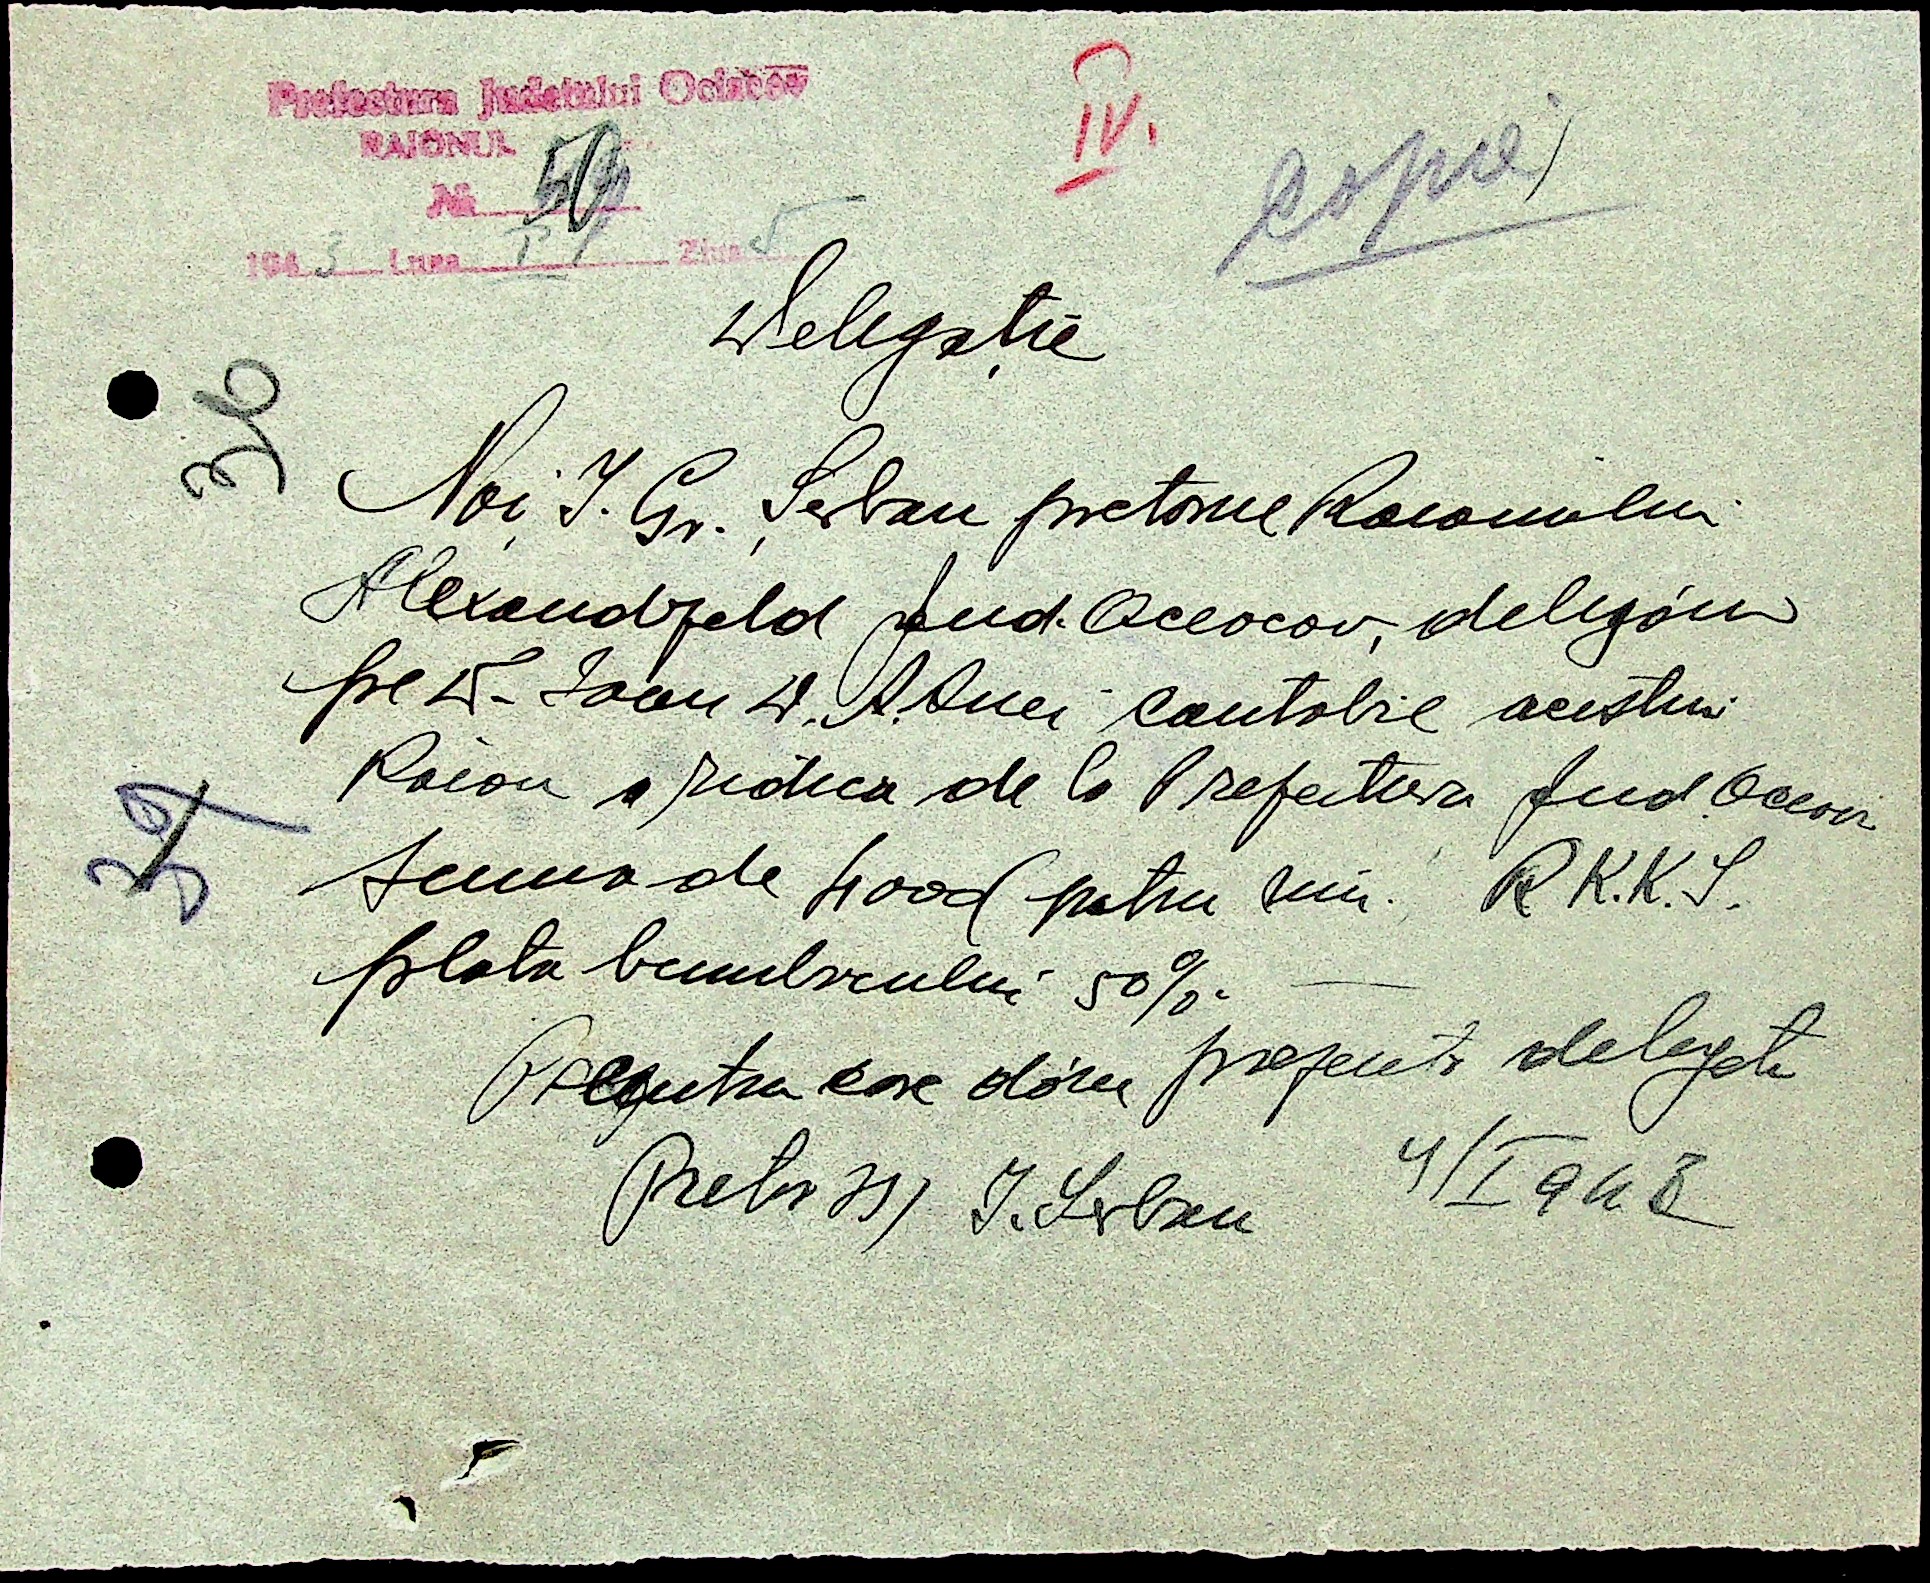 Prefectura Județului Ociacov
RAIONUL
No 50
1943 Luna I Ziua 5
IV.
copie
Delegație
36
Noi, I. Gr. Șerban pretorul Raionului
Alexandrfeld Jud. Oceacov, delegăm
pe D-l Ioan D. contabil acestui
Raion a ridica de la Prefectura Jud. Oceacov
suma de 4000 patru mii R.K.K.S.
plata bumbacului 50%.
Pentru care dăm prezenta delegație
Pretor ss/ I. Șerban 4/I 943